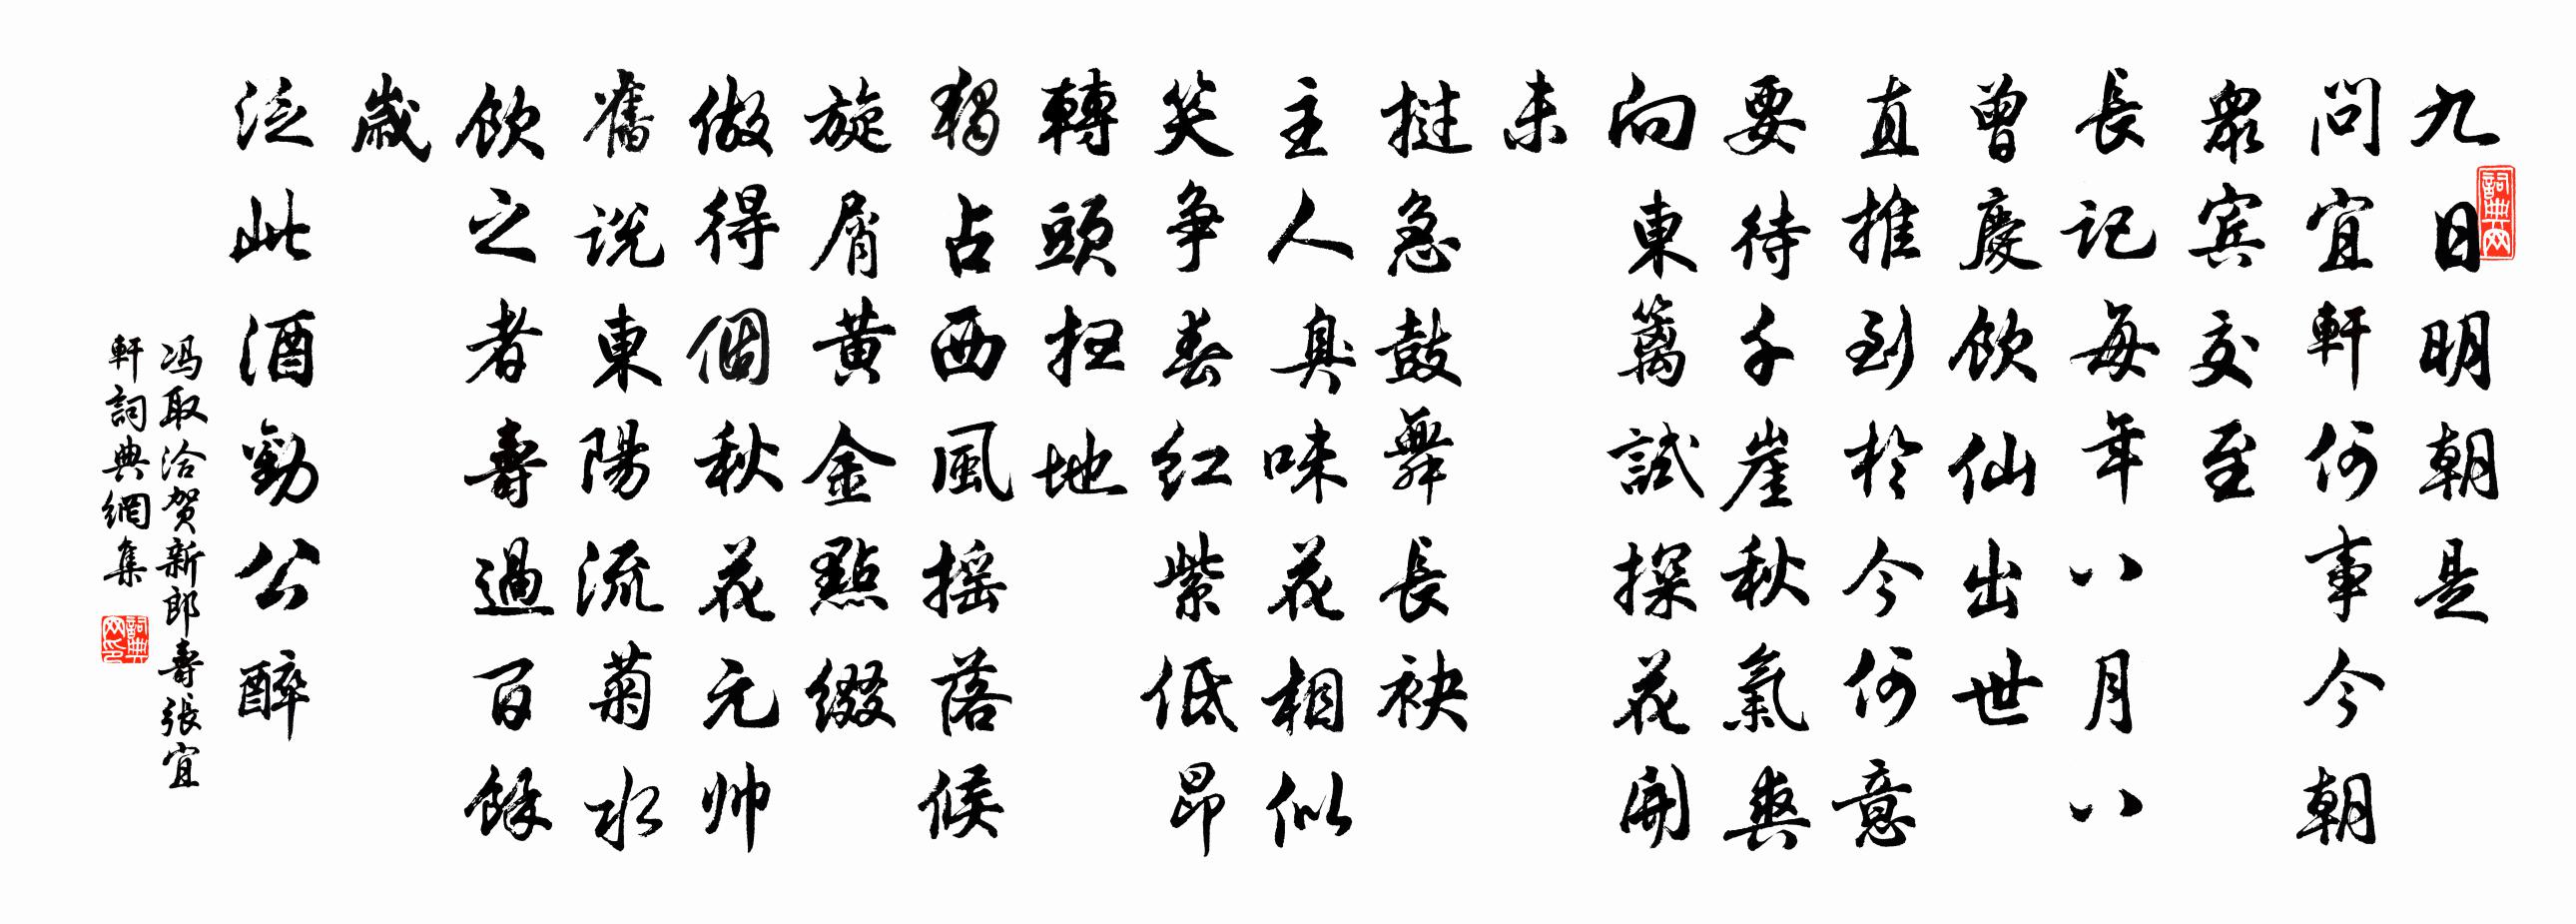 九日明朝是
問宜軒何事今朝
衆宾交至
長記每年八月八
曾慶飲仙出世
直推到於今何意
要待千崖秋氣爽
向東篱試探花開
未
挝急鼓舞長袂
主人臭味花相似
笑争春红紫低昂
轉頭扫地
獨占西風摇落候
旋屑黄金點缀
做得個秋花元帅
舊說東陽流菊水
飲之者壽過百餘
歲
泛此酒勸公醉
冯取洽贺新郎壽張宜
軒詞典網集
詞典网
詞典网印